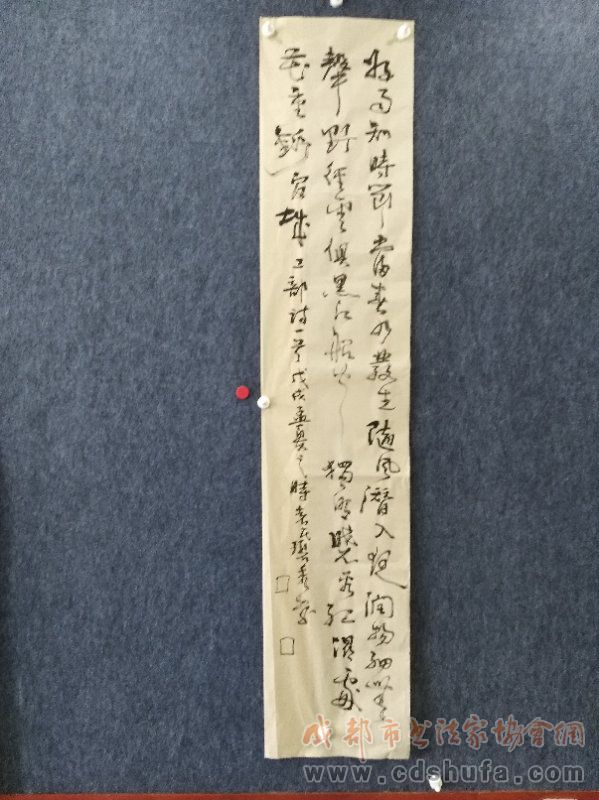 好雨知時節當春乃發生隨風潛入夜潤物細無
聲野徑雲俱黑江船火獨明曉看紅濕處
花重錦官城工部詩一首戊戌孟夏之時
成都市书法家協會網
www.cdshufa.com